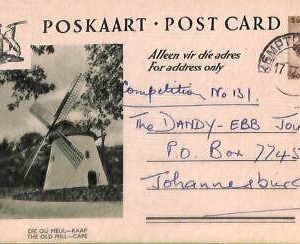 POSKAART · POST CARD
Alleen vir die adres
For address only
KEMPTO
17
Competition No 131.
The DANDY-EBB Jou
P.O. Box 7745
Johannesburg
DIE OU MEUL—KAAP
THE OLD MILL—CAPE